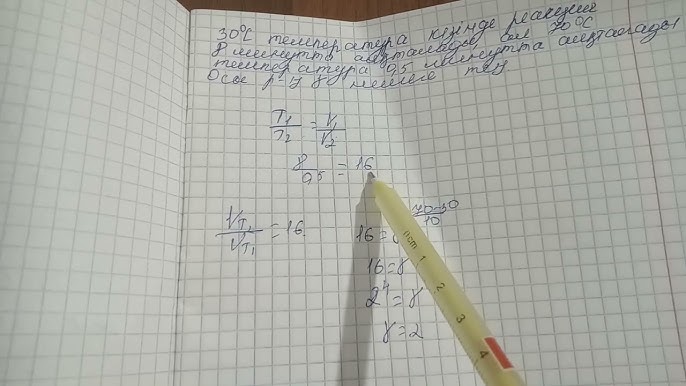 30°С температура кезінде реакция
8 минутта аяқталады ал 70°С
температура 0,5 минутта аяқталады
Осы р-ң γ нешеге тең
T₁/T₂ = V₁/V₂
8/0,5 = 16
V_T₂/V_T₁ = 16
16 = 70-30/10
16 = γ
2⁴ = γ
γ = 2
пст 1 2 3 4